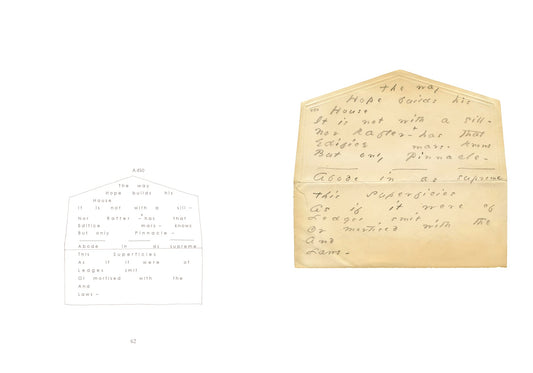 A 450
The way
Hope builds his
House
It is not with a sill –
Nor Rafter – has that
Edifice mars – knows
But only Pinnacle –
Abode in as supreme
This Superficies
As if it were of
Ledges smit
Or mortised with the
And
Laws –
62
the way
Hope builds his
House
It is not with a sill -
Nor Rafter - has that
Edifice mars - knows
But only Pinnacle -
Abode in as supreme
this superficies
As if it were of
Ledges smit
Or mortised with the
And
Laws -